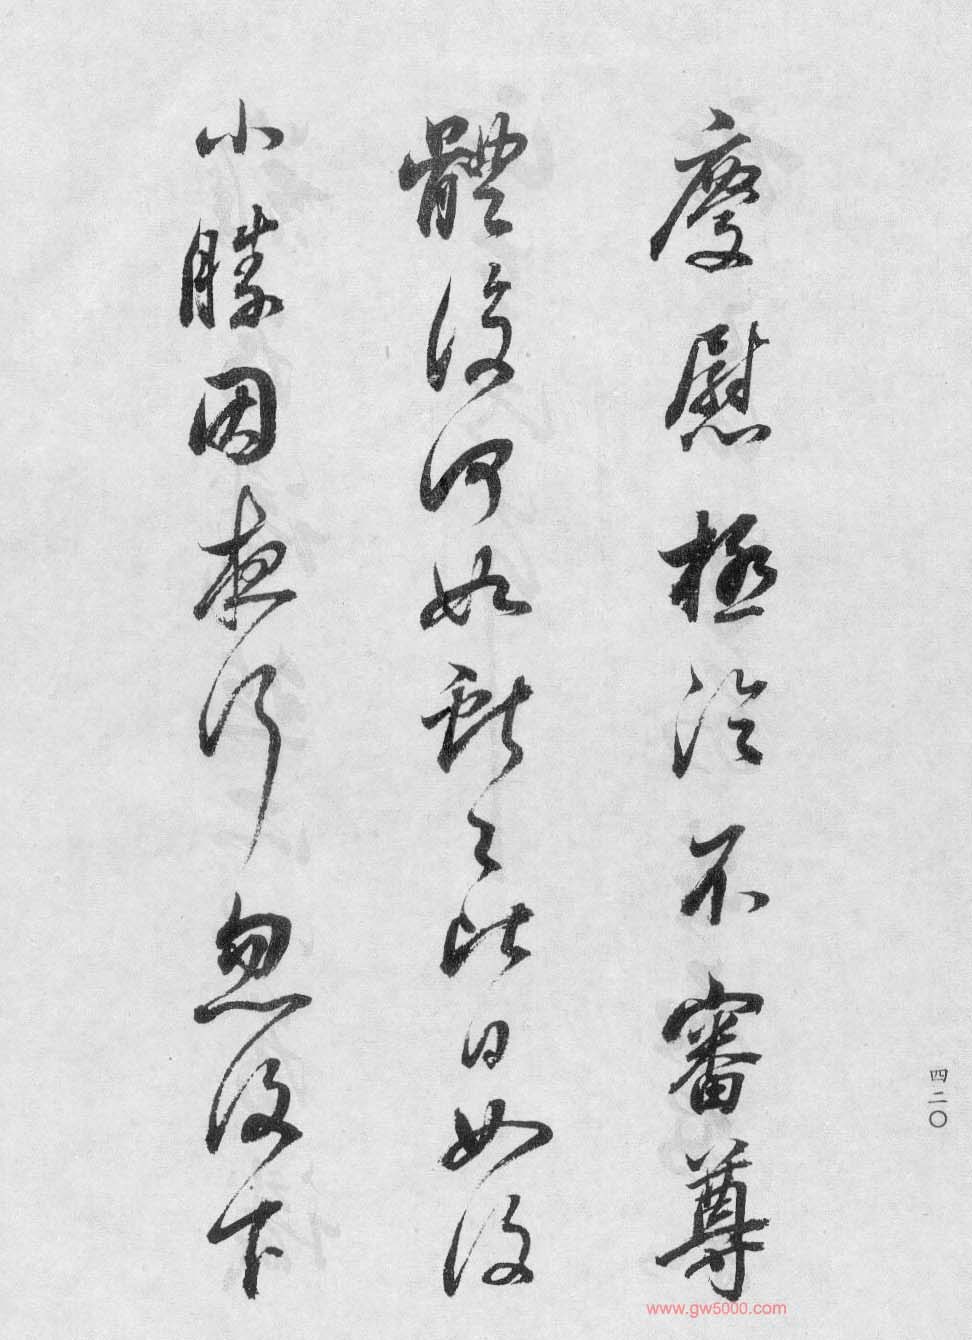 慶慰極冷不審尊
體復何如獻之比日如復
小勝因夜行忽復下
四二〇
www.gw5000.com